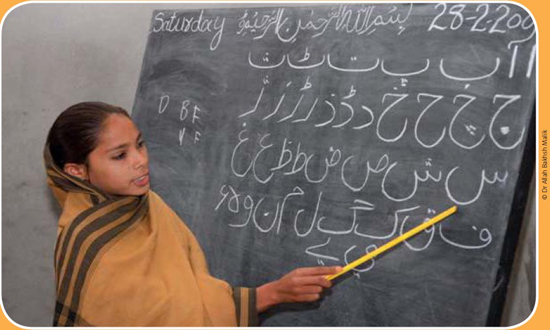 Saturday بسم اللہ الرحمن الرحیم 28-2-200
آ ا ب پ ت ٹ ث
ج چ ح خ د ڈ ذ ر ڑ ز ژ
D B F
V F
س ش ص ض ط ظ ع غ
ف ق ک گ ل م ن و ہ ء
ی ے
© Dr Allah Bakhsh Malik